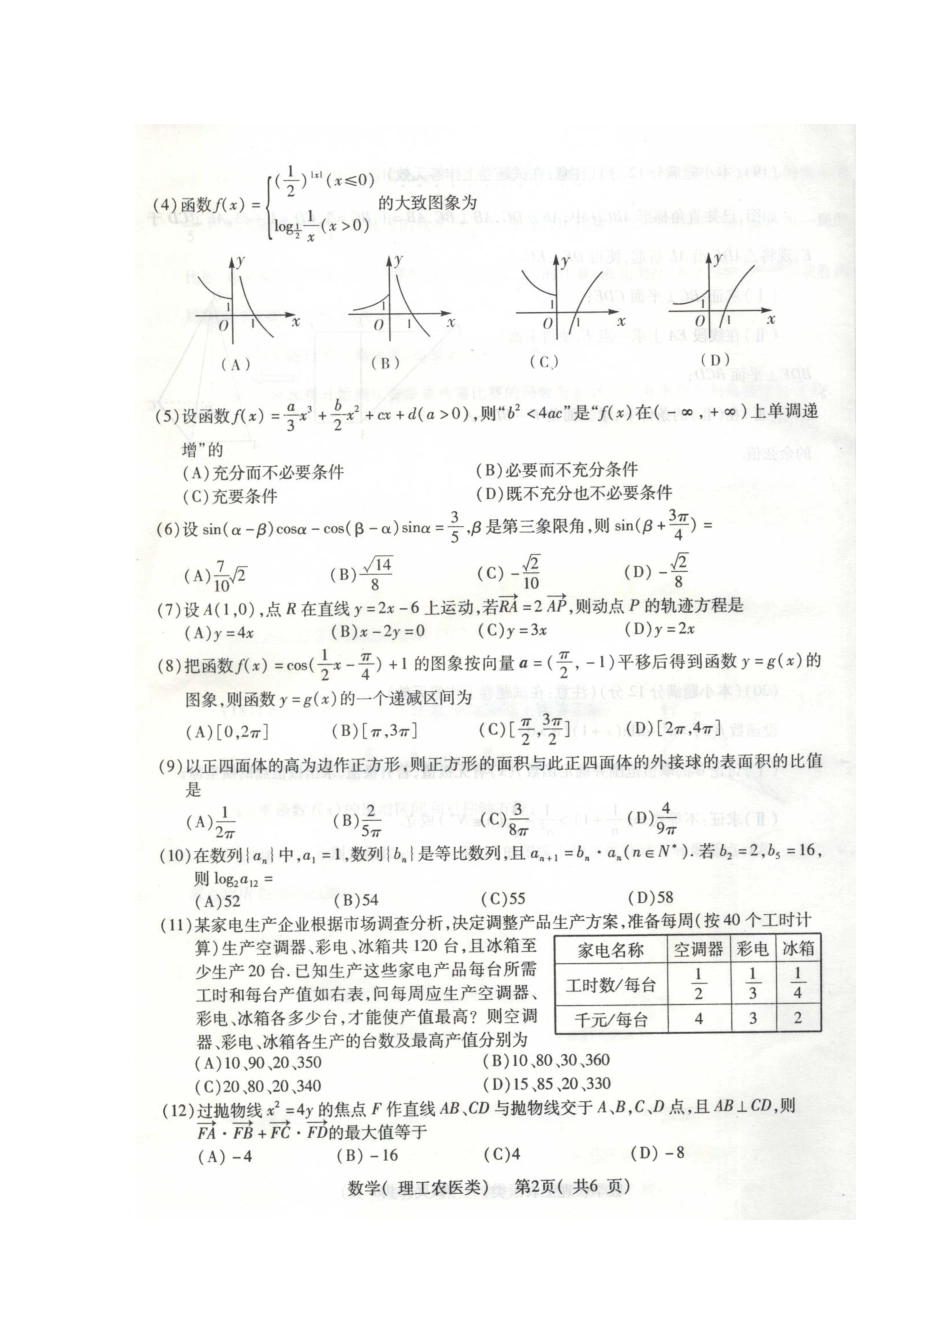 (4)函数f(x) = { (1/2)^|x| (x≤0)
log_{1/2} 1/x (x>0) 的大致图象为
y y y y
1 1 1 1
O 1 x O 1 x O 1 x O 1 x
(A) (B) (C) (D)
(5)设函数f(x) = a/3 x³ + b/2 x² + cx + d(a>0),则“b² <4ac”是“f(x)在(-∞,+∞)上单调递
增”的
(A)充分而不必要条件 (B)必要而不充分条件
(C)充要条件 (D)既不充分也不必要条件
(6)设 sin(α-β)cosα - cos(β-α)sinα = 3/5,β是第三象限角,则 sin(β+ 3π/4) =
(A) 7/10 √2 (B) √14/8 (C) - √2/10 (D) - √2/8
(7)设 A(1,0),点 R 在直线 y=2x-6 上运动,若RA→ =2 AP→,则动点 P 的轨迹方程是
(A)y=4x (B)x-2y=0 (C)y=3x (D)y=2x
(8)把函数f(x) = cos( 1/2 x - π/4 ) +1 的图象按向量 a = ( π/2 , -1)平移后得到函数 y=g(x)的
图象,则函数 y=g(x)的一个递减区间为
(A)[0,2π] (B)[π,3π] (C)[ π/2 , 3π/2 ] (D)[2π,4π]
(9)以正四面体的高为边作正方形,则正方形的面积与此正四面体的外接球的表面积的比值
是
(A) 1/2π (B) 2/5π (C) 3/8π (D) 4/9π
(10)在数列{aₙ}中,a₁ =1,数列{bₙ}是等比数列,且 aₙ₊₁ =bₙ·aₙ(n∈N*).若 b₂ =2,b₅ =16,
则 log₂a₁₂ =
(A)52 (B)54 (C)55 (D)58
(11)某家电生产企业根据市场调查分析,决定调整产品生产方案,准备每周(按40个工时计
算)生产空调器、彩电、冰箱共120台,且冰箱至
少生产20台.已知生产这些家电产品每台所需
工时和每台产值如右表,问每周应生产空调器、
彩电、冰箱各多少台,才能使产值最高?则空调
器、彩电、冰箱各生产的台数及最高产值分别为
家电名称 空调器 彩电 冰箱
工时数/每台 1/2 1/3 1/4
千元/每台 4 3 2
(A)10、90、20、350 (B)10、80、30、360
(C)20、80、20、340 (D)15、85、20、330
(12)过抛物线 x² =4y 的焦点 F 作直线 AB、CD 与抛物线交于 A、B,C、D 点,且 AB⊥CD,则
FA→·FB→ + FC→·FD→的最大值等于
(A) -4 (B) -16 (C)4 (D) -8
数学( 理工农医类) 第2页( 共6 页)